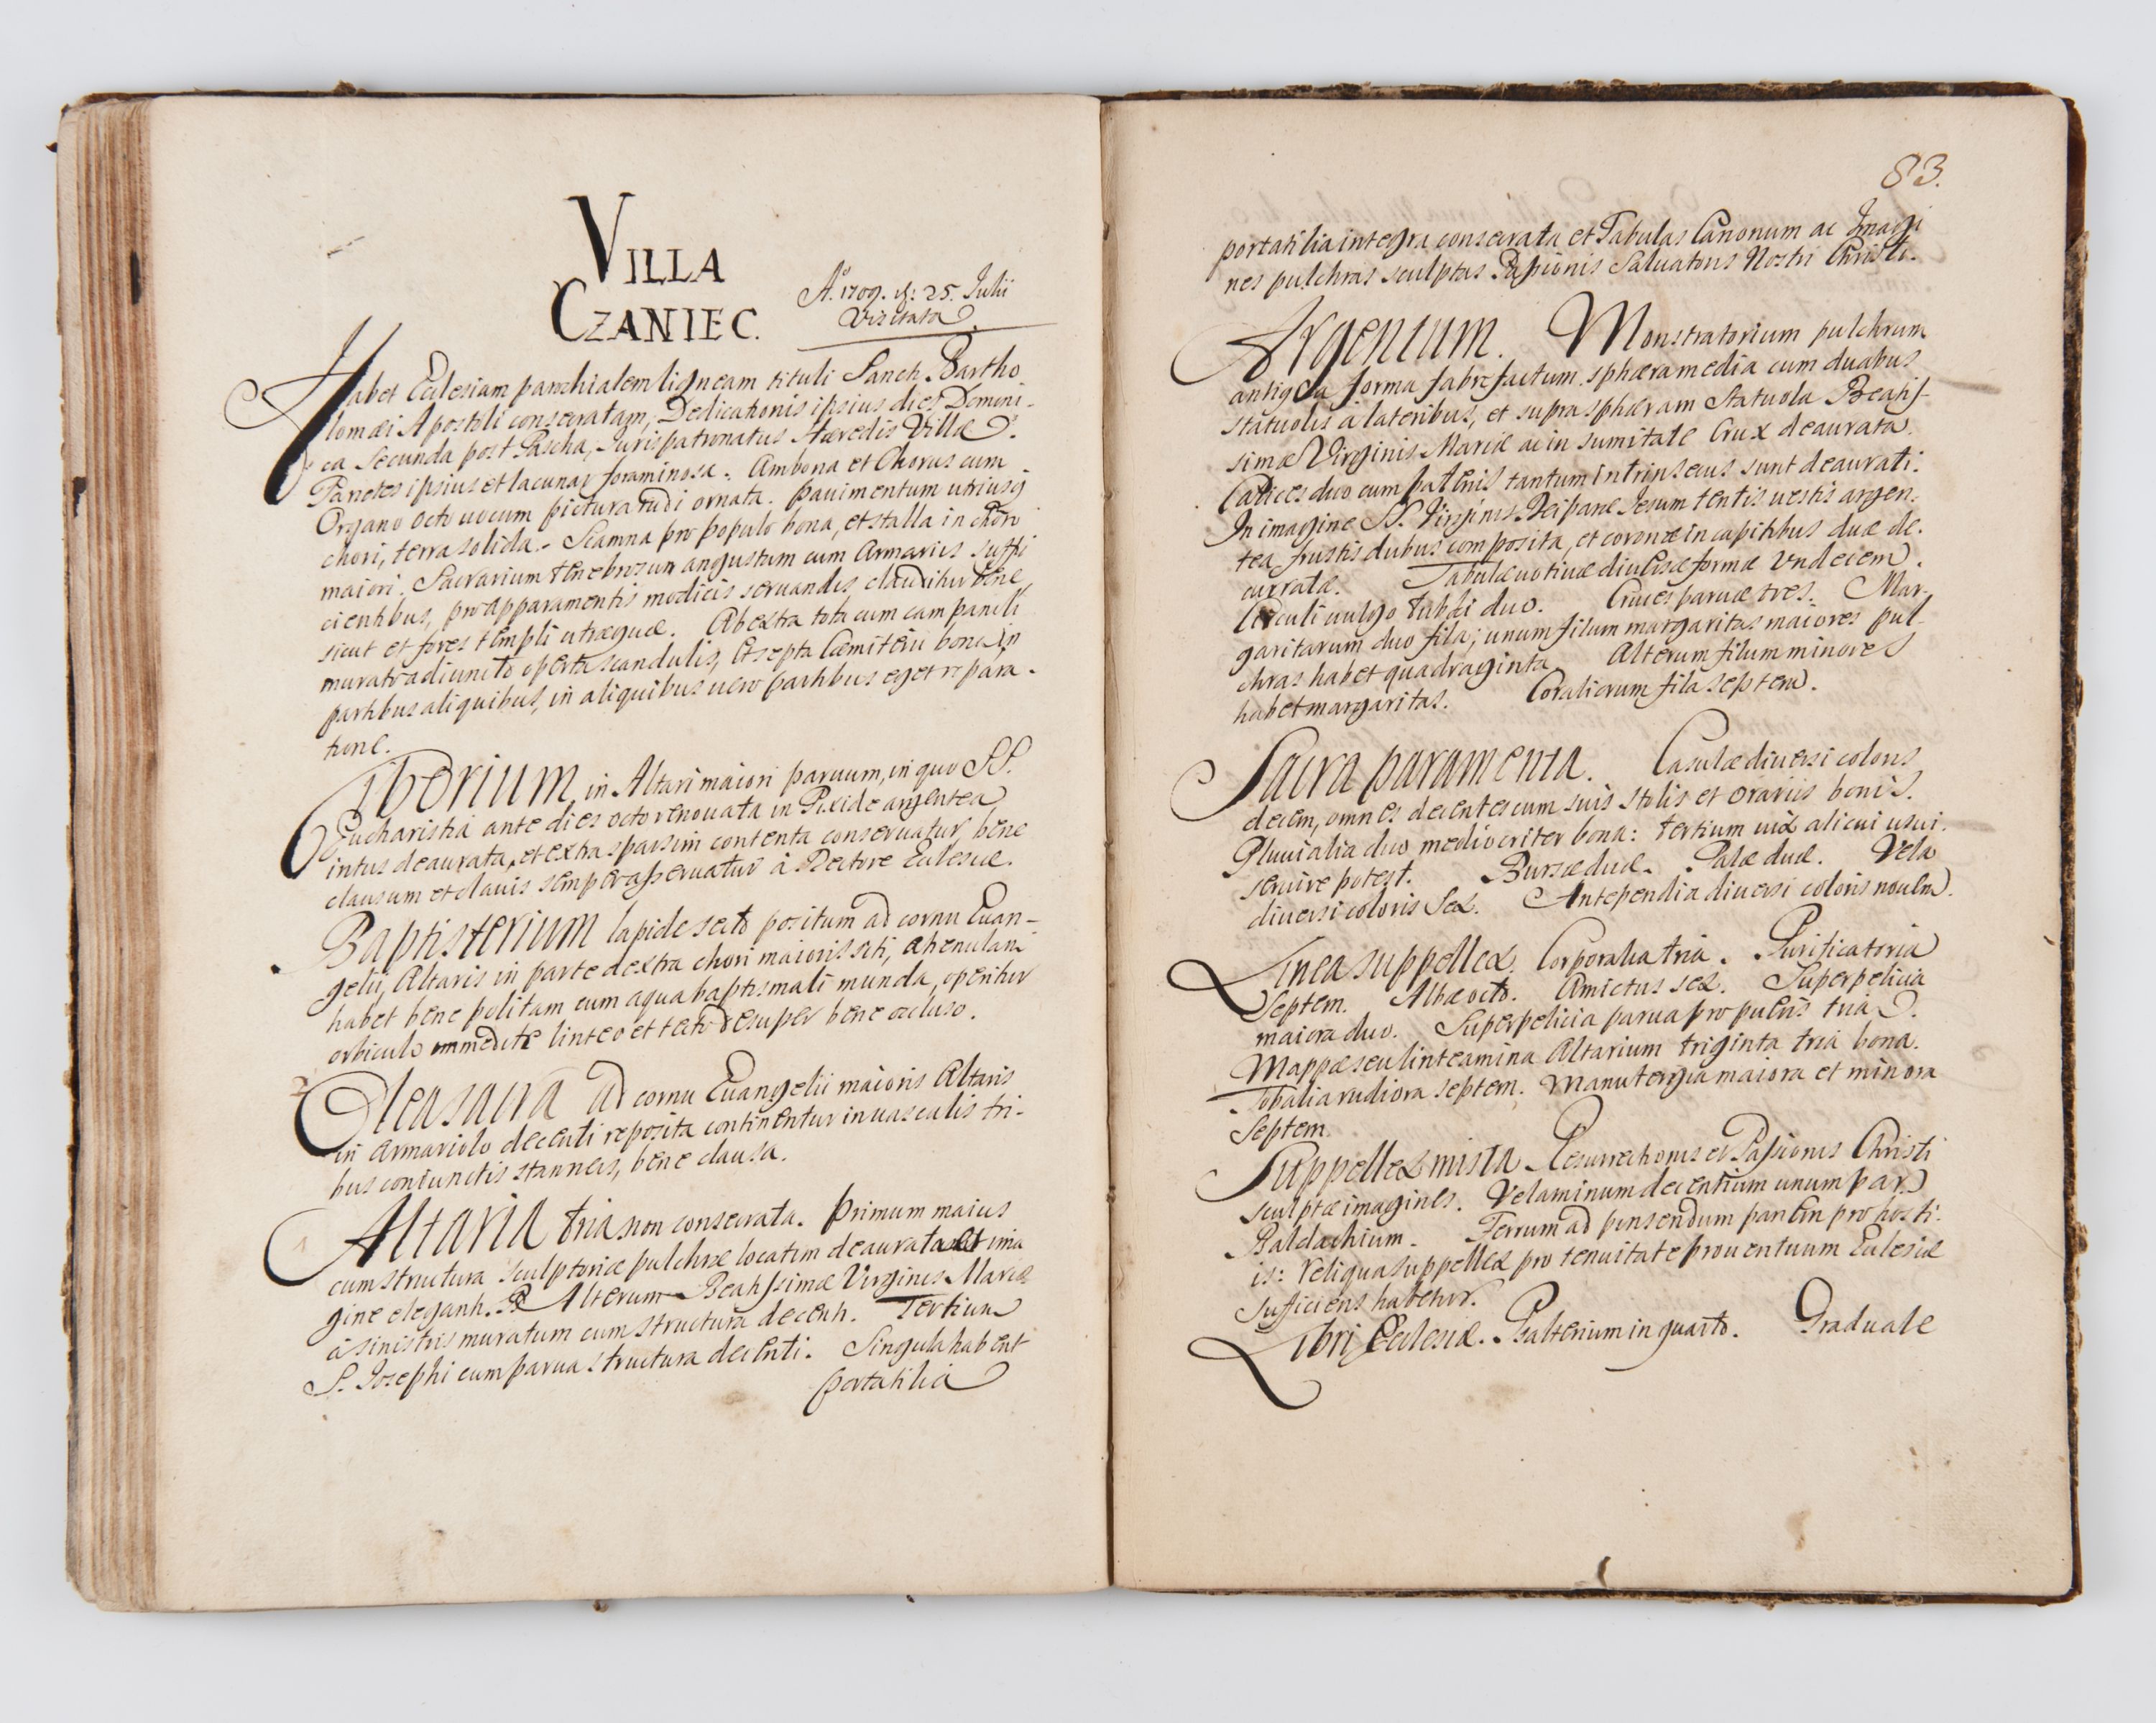 VILLA
CZANIEC.
Aº. 1709. d: 25. Julii
Visitata
Habet Ecclesiam parochialem ligneam tituli Sancti Bartho
lomæi Apostoli consecratam, Dedicationis ipsius dies Domini-
ca secunda post Pascha, Juris patronatus Hæredis Villæ.
Parietes ipsius et lacunar foraminosa. Ambona et Chorus cum
Organo octo uocum pictura rudi ornata. pauimentum utriusq
chori, terra solida. Scamna pro populo bona, et stalla in choro
maiori. Sacrarium tenebrosum angustum cum Armariis suffi
cientibus, pro apparamentis modicis seruandis, clauditur bene,
sicut et fores templi utræque. Ab extra tota cum campanili
murato adiuncto operta scandulis, et septa Cæmiterii bona in
partibus aliquibus, in aliquibus uero partibus eget repara-
tione.
Ciborium in Altari maiori paruum, in quo SS.
Eucharistia ante dies octo renouata in Pixide argentea
intus deaurata, et extra sparsim contenta conseruatur, bene
clausum et clauis semper asseruatur à Rectore Ecclesiæ.
Baptisterium lapide secto positum ad cornu Euan-
gelii, Altaris in parte dextra chori maioris siti, ahenulam
habet bene politam cum aqua baptismali munda, operitur
orbiculo immediate linteo et tecto desuper bene occluso.
2
Olea sacra ad cornu Euangelii maioris Altaris
in armariolo decenti reposita continentur in uasculis tri-
bus coniunctis stanneis, bene clausa.
1
Altaria tria non consecrata. Primum maius
cum structura sculptoriæ pulchræ locatim deaurata et ima
gine eleganti. Alterum Beatissimæ Virginis Mariæ
à sinistris muratum cum structura decenti. Tertium
S. Josephi cum parua structura decenti. Singula habent
portatilia
83.
portatilia integra consecrata et Tabulas Canonum ac Imagi
nes pulchras sculptas Passionis Saluatoris Nostri Christi.
Argentum. Monstratorium pulchrum
antiqua forma fabrefactum sphæra media cum duabus
statuolis a lateribus, et supra sphæram statuola Beatis-
simæ Virginis Mariæ ac in sumitate Crux deaurata.
Calices duo cum patenis tantum intrinsecus sunt deaurati.
In imagine SS. Virginis Deiparæ Jesum tentis uestis argen-
tea frustis dubus composita, et coronæ in capitibus duæ de-
auratæ. Tabulæ uotiuæ diuersæ formæ Vndecem.
Circuli uulgo tubki duo. Cruces paruæ tres. Mar-
garitarum duo fila; unum filum margaritas maiores pul-
chras habet quadraginta. Alterum filum minores
habet margaritas. Coraliorum fila septem.
Sacra paramenta. Casulæ diuersi coloris
decem, omnes decentes cum suis stolis et orariis bonis.
Pluuialia duo mediocriter bona: tertium uix alicui usui
seruire potest. Bursæ duæ. Palæ duæ. Vela
diuersi coloris sex. Antependia diuersi coloris nouem.
Linea suppellex. Corporalia tria. Purificatoria
septem. Albæ octo. Amictus sex. Superpelicia
maiora duo. Superpelicia parua pro pueris tria.
Mappæ seu linteamina Altarium triginta tria bona.
Tobalia rudiora septem. Manutergia maiora et minora
septem.
Suppellex mista Resurrectionis et Passionis Christi
sculptæ imagines. Velaminum decentium unum par.
Baldachium. Ferrum ad pinsendum panem pro hosti-
is: reliqua suppellex pro tenuitate prouentuum Eclesiæ
sufficiens habetur.
Libri Ecclesiæ. Psalterium in quarto. Graduale